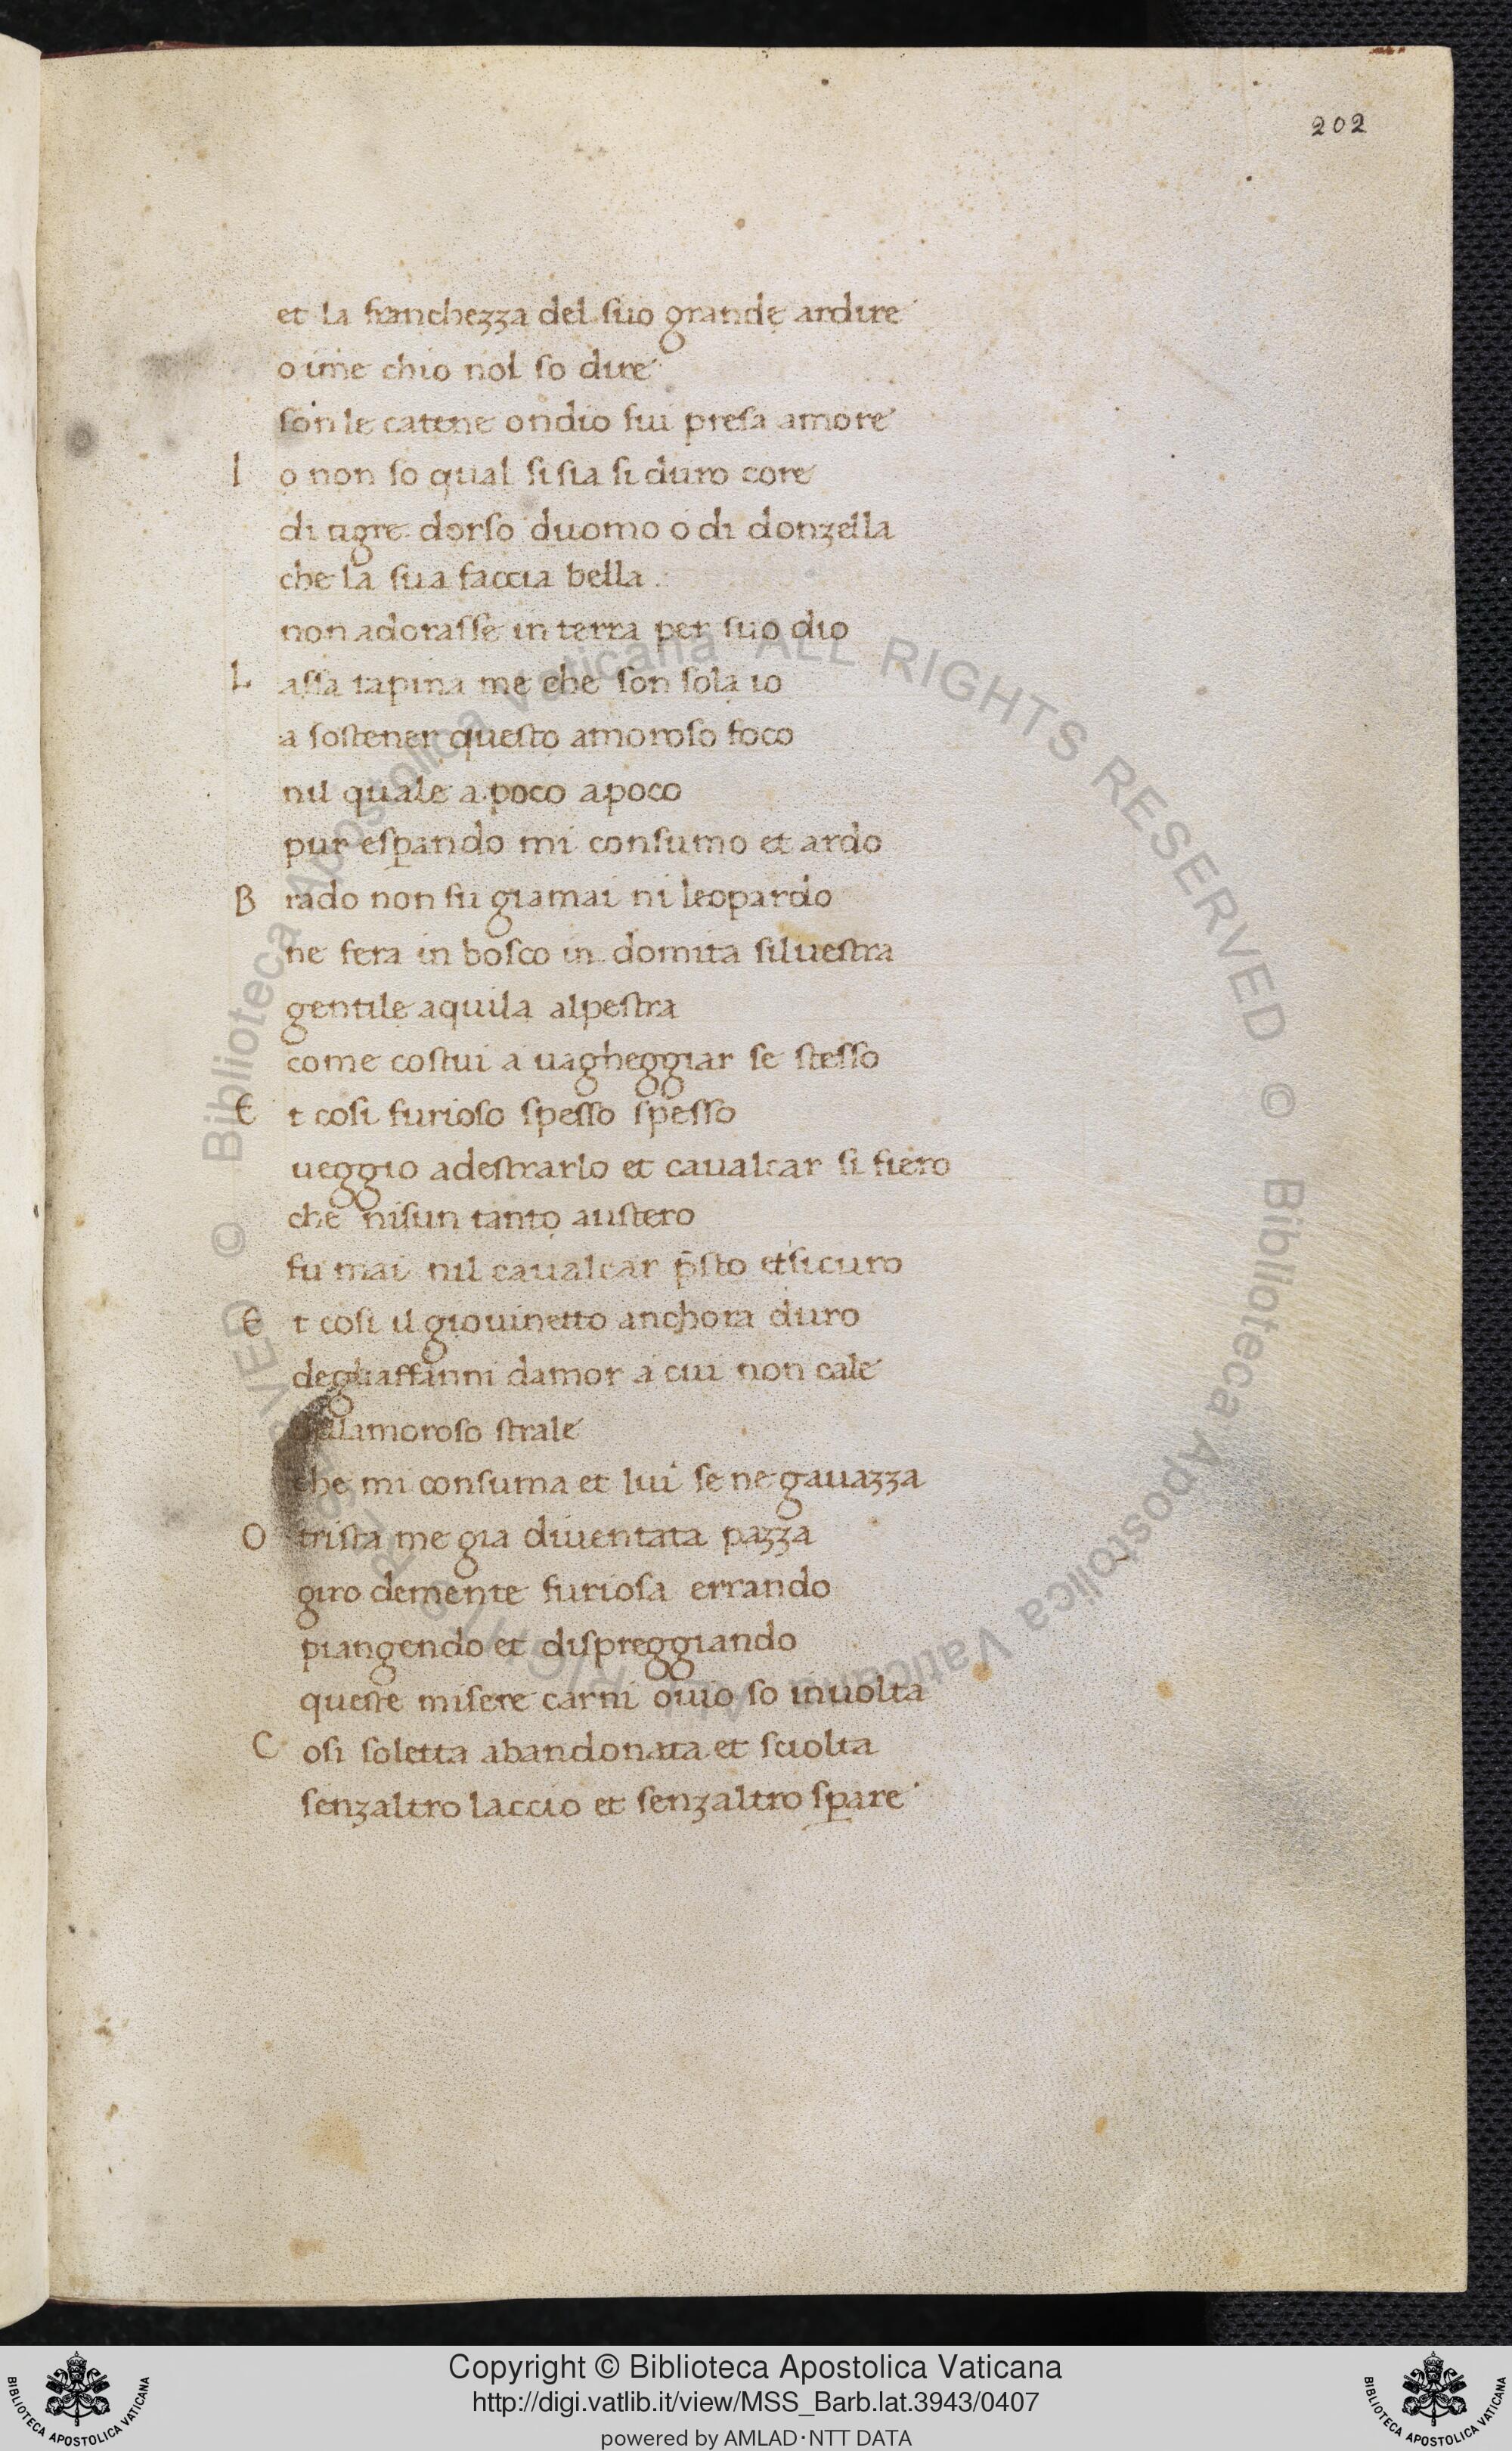 202
et la franchezza del suo grande ardire
oime chio nol so dire
son le catene ondio fui presa amore
I o non so qual si sia si duro core
di tigre dorso duomo o di donzella
che la sua faccia bella.
non adorasse in terra per suo dio
L assa tapina me che son sola io
a sostener questo amoroso foco
nil quale a poco apoco
pur esꝑando mi consumo et ardo
B rado non fu giamai ni leopardo
ne fera in bosco in domita siluestra
gentile aquila alpestra
come costui a uagheggiar se stesso
E t cosi furioso spesso spesso
ueggio adestrarlo et caualcar si fiero
che nisun tanto austero
fu mai nil caualcar p̄sto et sicuro
E t cosi il giouinetto anchora duro
degliaffanni damor a cui non cale
amoroso strale
che mi consuma et lui se ne gauazza
O trista me gia diuentata pazza
giro demente furiosa errando
piangendo et dispreggiando
queste misere carni ouio so inuolta
C osi soletta abandonata et sciolta
senzaltro laccio et senzaltro sꝑare
© Biblioteca Apostolica Vaticana ALL RIGHTS RESERVED © Biblioteca Apostolica Vaticana ALL RIGHTS RESERVED
Copyright © Biblioteca Apostolica Vaticana
http://digi.vatlib.it/view/MSS_Barb.lat.3943/0407
powered by AMLAD·NTT DATA
BIBLIOTECA APOSTOLICA VATICANA
BIBLIOTECA APOSTOLICA VATICANA